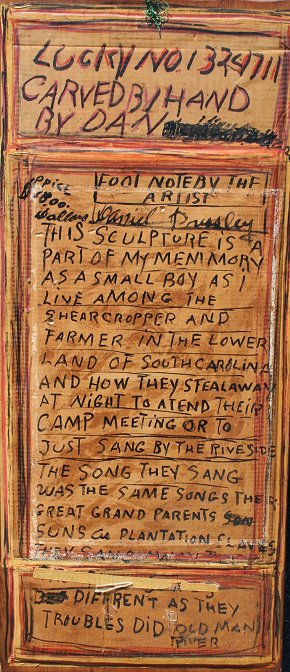 LUCKY NO 1324711
CARVED BY HAND
BY DAN
PRICE
$1800.00
Dollars
FOOT NOTE BY THE
ARTIST
Daniel Pressley
THIS SCULPTURE IS A
PART OF MY MENIMORY
AS A SMALL BOY AS I
LIVE AMONG THE
SHEARCROPPER AND
FARMER IN THE LOWER
LAND OF SOUTH CAROLINA
AND HOW THEY STEAL AWAY
AT NIGHT TO ATEND THEIR
CAMP MEETING OR TO
JUST SANG BY THE RIVESIDE
THE SONG THEY SANG
WAS THE SAME SONGS THER
GREAT GRAND PARENTS
SUNG AS PLANTATION SLAVES
DIFFRENT AS THEY
TROUBLES DID OLD MAN
RIVER